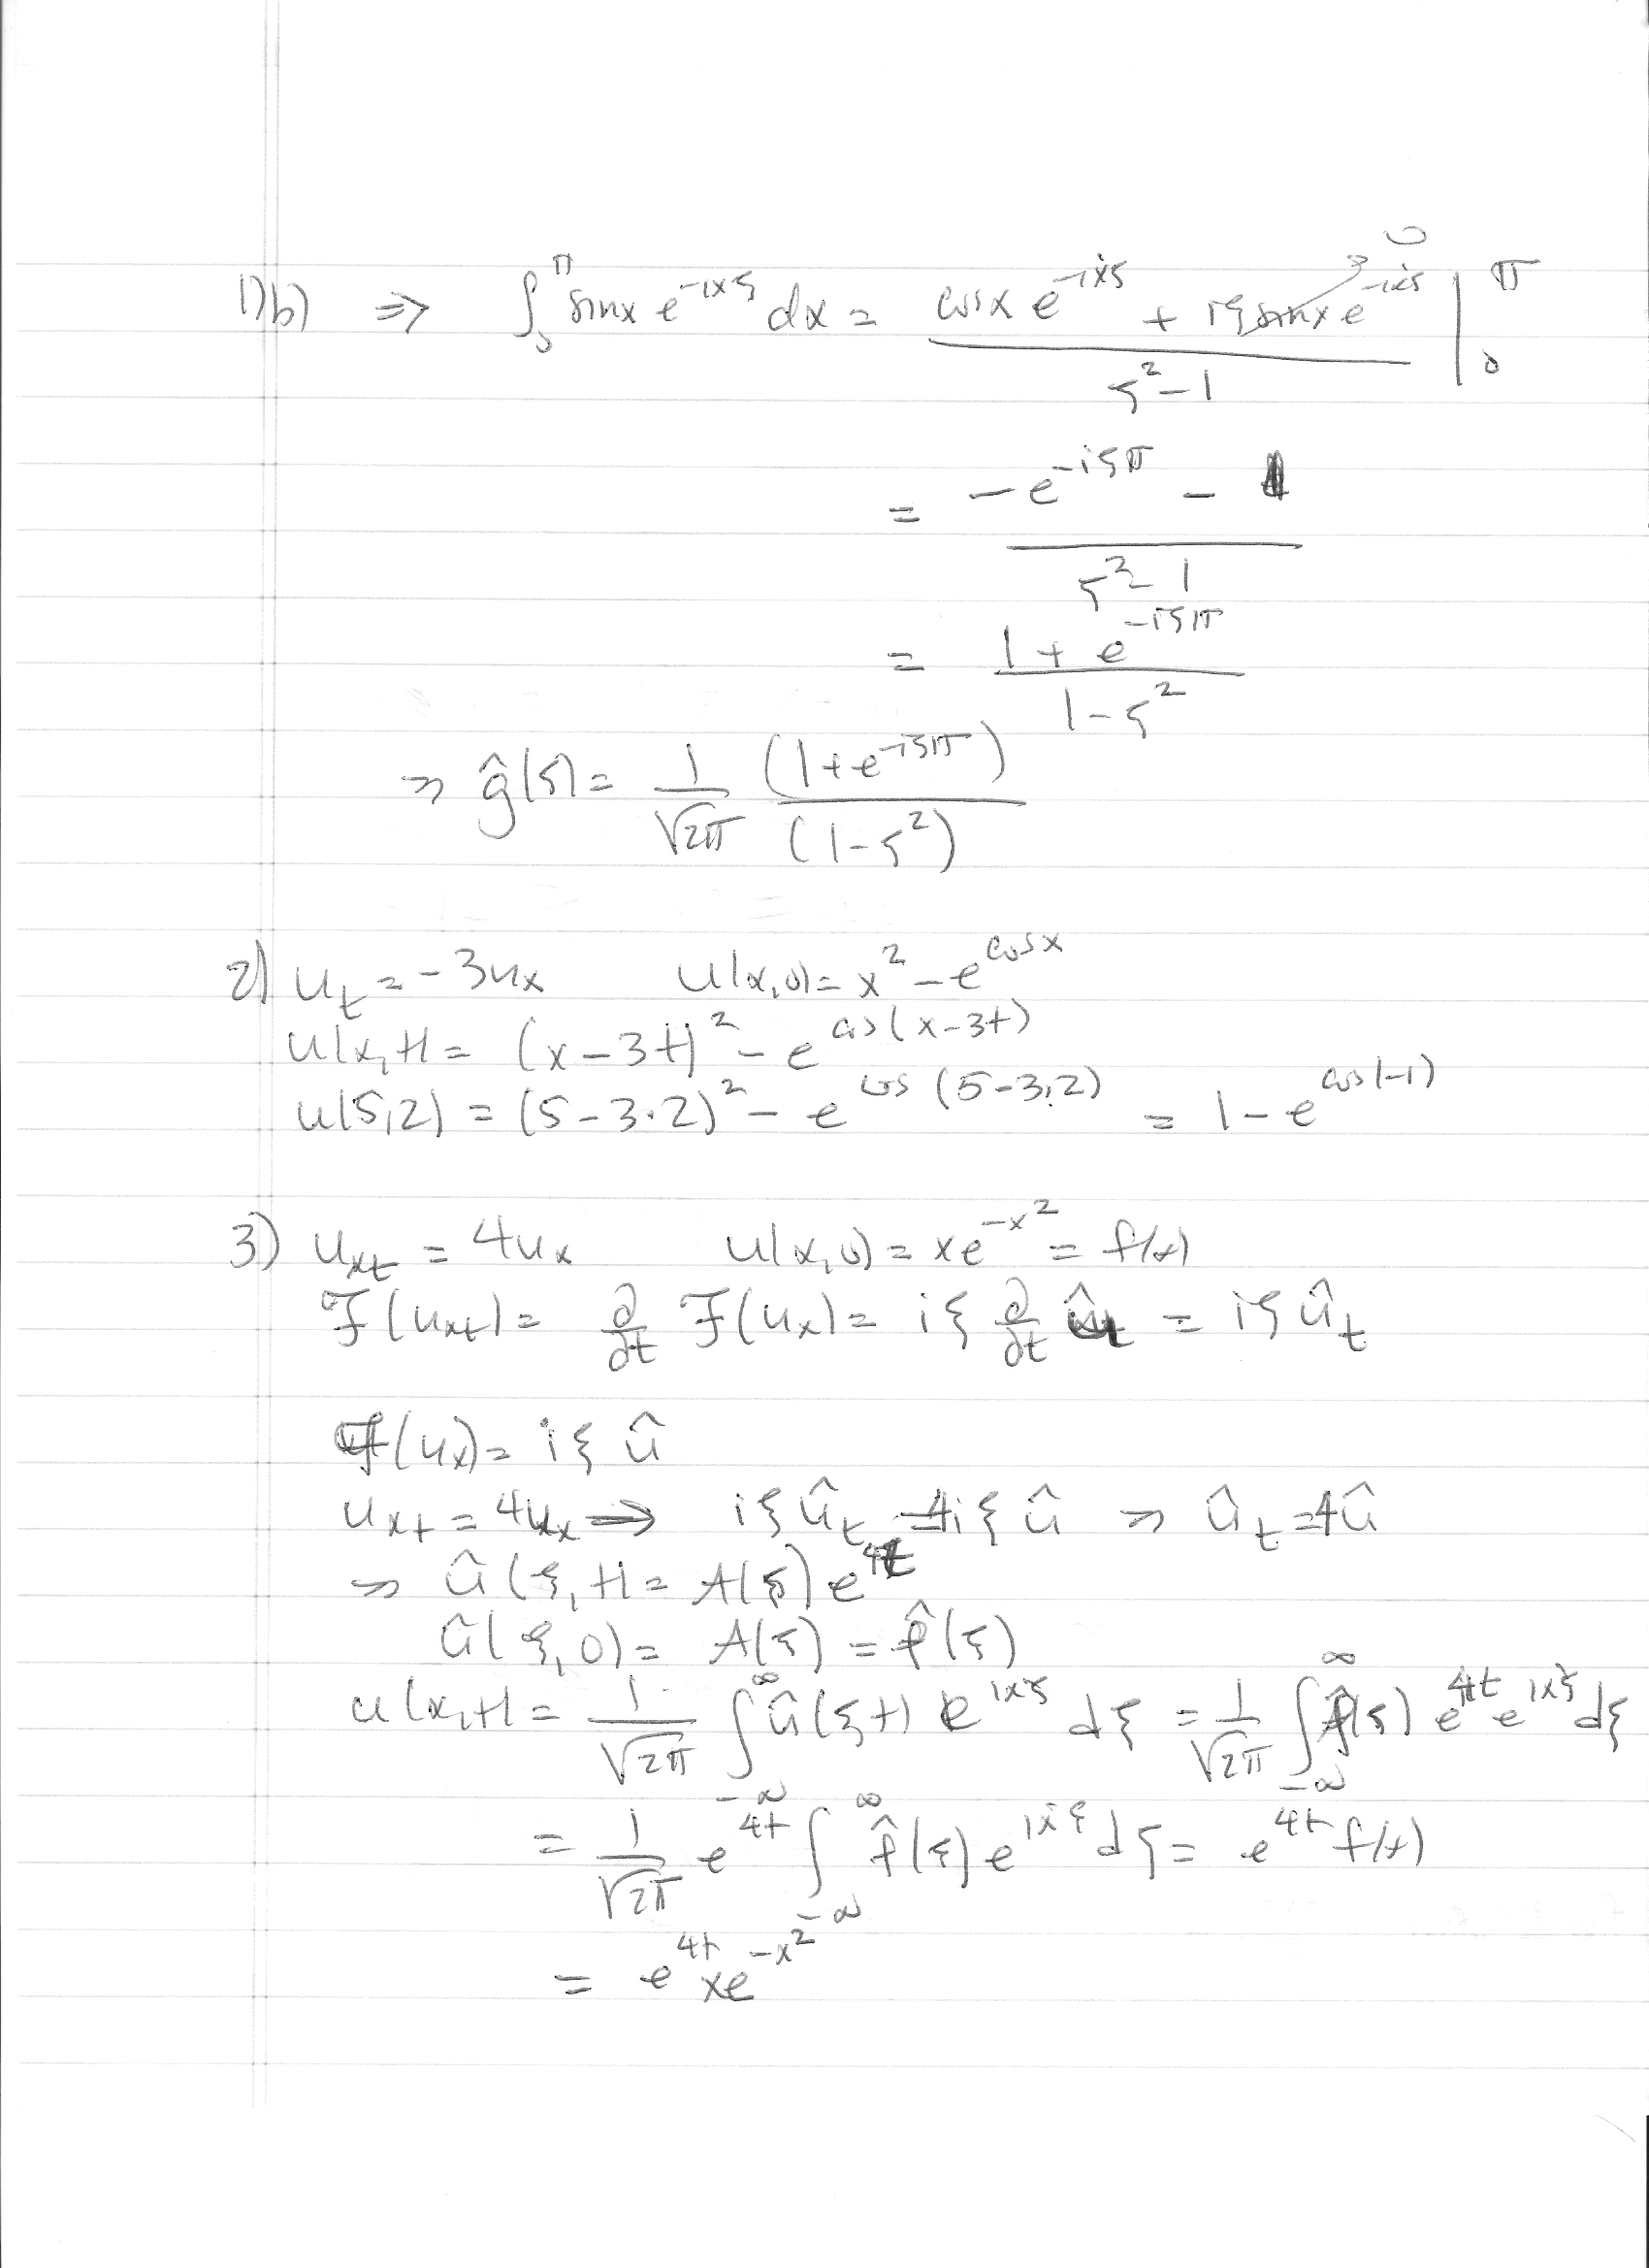 1)b) ⇒ ∫₀^π sinx e^{-ixξ} dx = (cosx e^{-ixξ} + iξ sinx e^{-ixξ})/(ξ²-1) |₀^π
= (-e^{-iξπ} - 1)/(ξ²-1)
= (1 + e^{-iξπ})/(1-ξ²)
⇒ ĝ(ξ) = 1/√2π (1+e^{-iξπ})/(1-ξ²)
2) u_t = -3u_x u(x,0) = x² - e^{cosx}
u(x,t) = (x-3t)² - e^{cos(x-3t)}
u(5,2) = (5-3·2)² - e^{cos(5-3·2)} = 1 - e^{cos(-1)}
3) u_xt = 4u_x u(x,0) = xe^{-x²} = f(x)
F(u_xt) = ∂/∂t F(u_x) = iξ ∂/∂t û = iξ û_t
F(u_x) = iξ û
u_xt = 4u_x ⇒ iξ û_t = 4iξ û ⇒ û_t = 4û
⇒ û(ξ,t) = A(ξ)e^{4t}
û(ξ,0) = A(ξ) = f̂(ξ)
u(x,t) = 1/√2π ∫_{-∞}^{∞} û(ξ,t) e^{ixξ} dξ = 1/√2π ∫_{-∞}^{∞} f̂(ξ) e^{4t} e^{ixξ} dξ
= 1/√2π e^{4t} ∫_{-∞}^{∞} f̂(ξ) e^{ixξ} dξ = e^{4t} f(x)
= e^{4t} xe^{-x²}